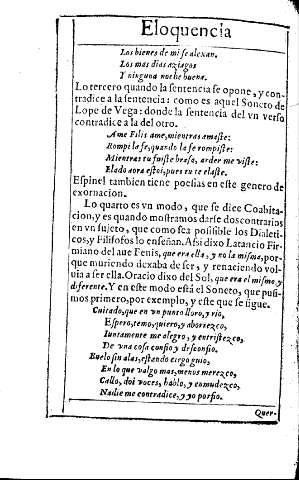 Eloquencia
Los bienes de mi se alexan.
Los mas dias aziagos
Y ninguna noche buena.
Lo tercero quando la sentencia se opone, y con-
tradice a la sentencia: como es aquel Soneto de
Lope de Vega: donde la sentencia del vn verso
contradice a la del otro.
Ame Filis ame, mientras amaste:
Rompi la fe, quando la fe rompiste:
Mientras tu fuiste brasa, arder me viste:
Elado aora estoi, pues tu te elaste.
Espinel tambien tiene poesias en este genero de
exornacion.
Lo quarto es vn modo, que se dice Coabita-
cion, y es quando mostramos darse dos contrarios
en vn sujeto, que como sea possible los Dialeti-
cos, y Filisofos lo enseñan. Assi dixo Latancio Fir-
miano del aue Fenis, que era ella, y no la misma, por-
que muriendo dexaba de ser, y renaciendo vol-
via a ser ella. Oracio dixo del Sol, que era el mismo y
diferente. Y en este modo está el Soneto, que pusi-
mos primero, por exemplo, y este que se sigue.
Cuitado, que en vn punto lloro, y rio,
Espero, temo, quiero, y aborrezco,
Iuntamente me alegro, y entristezco,
De vna cosa confio y desconfio.
Buelo sin alas, estando ciego guio,
En lo que valgo mas, menos merezco,
Callo, doi voces, hablo, y enmudezco,
Nadie me contradice, y yo porfio.
Quer-